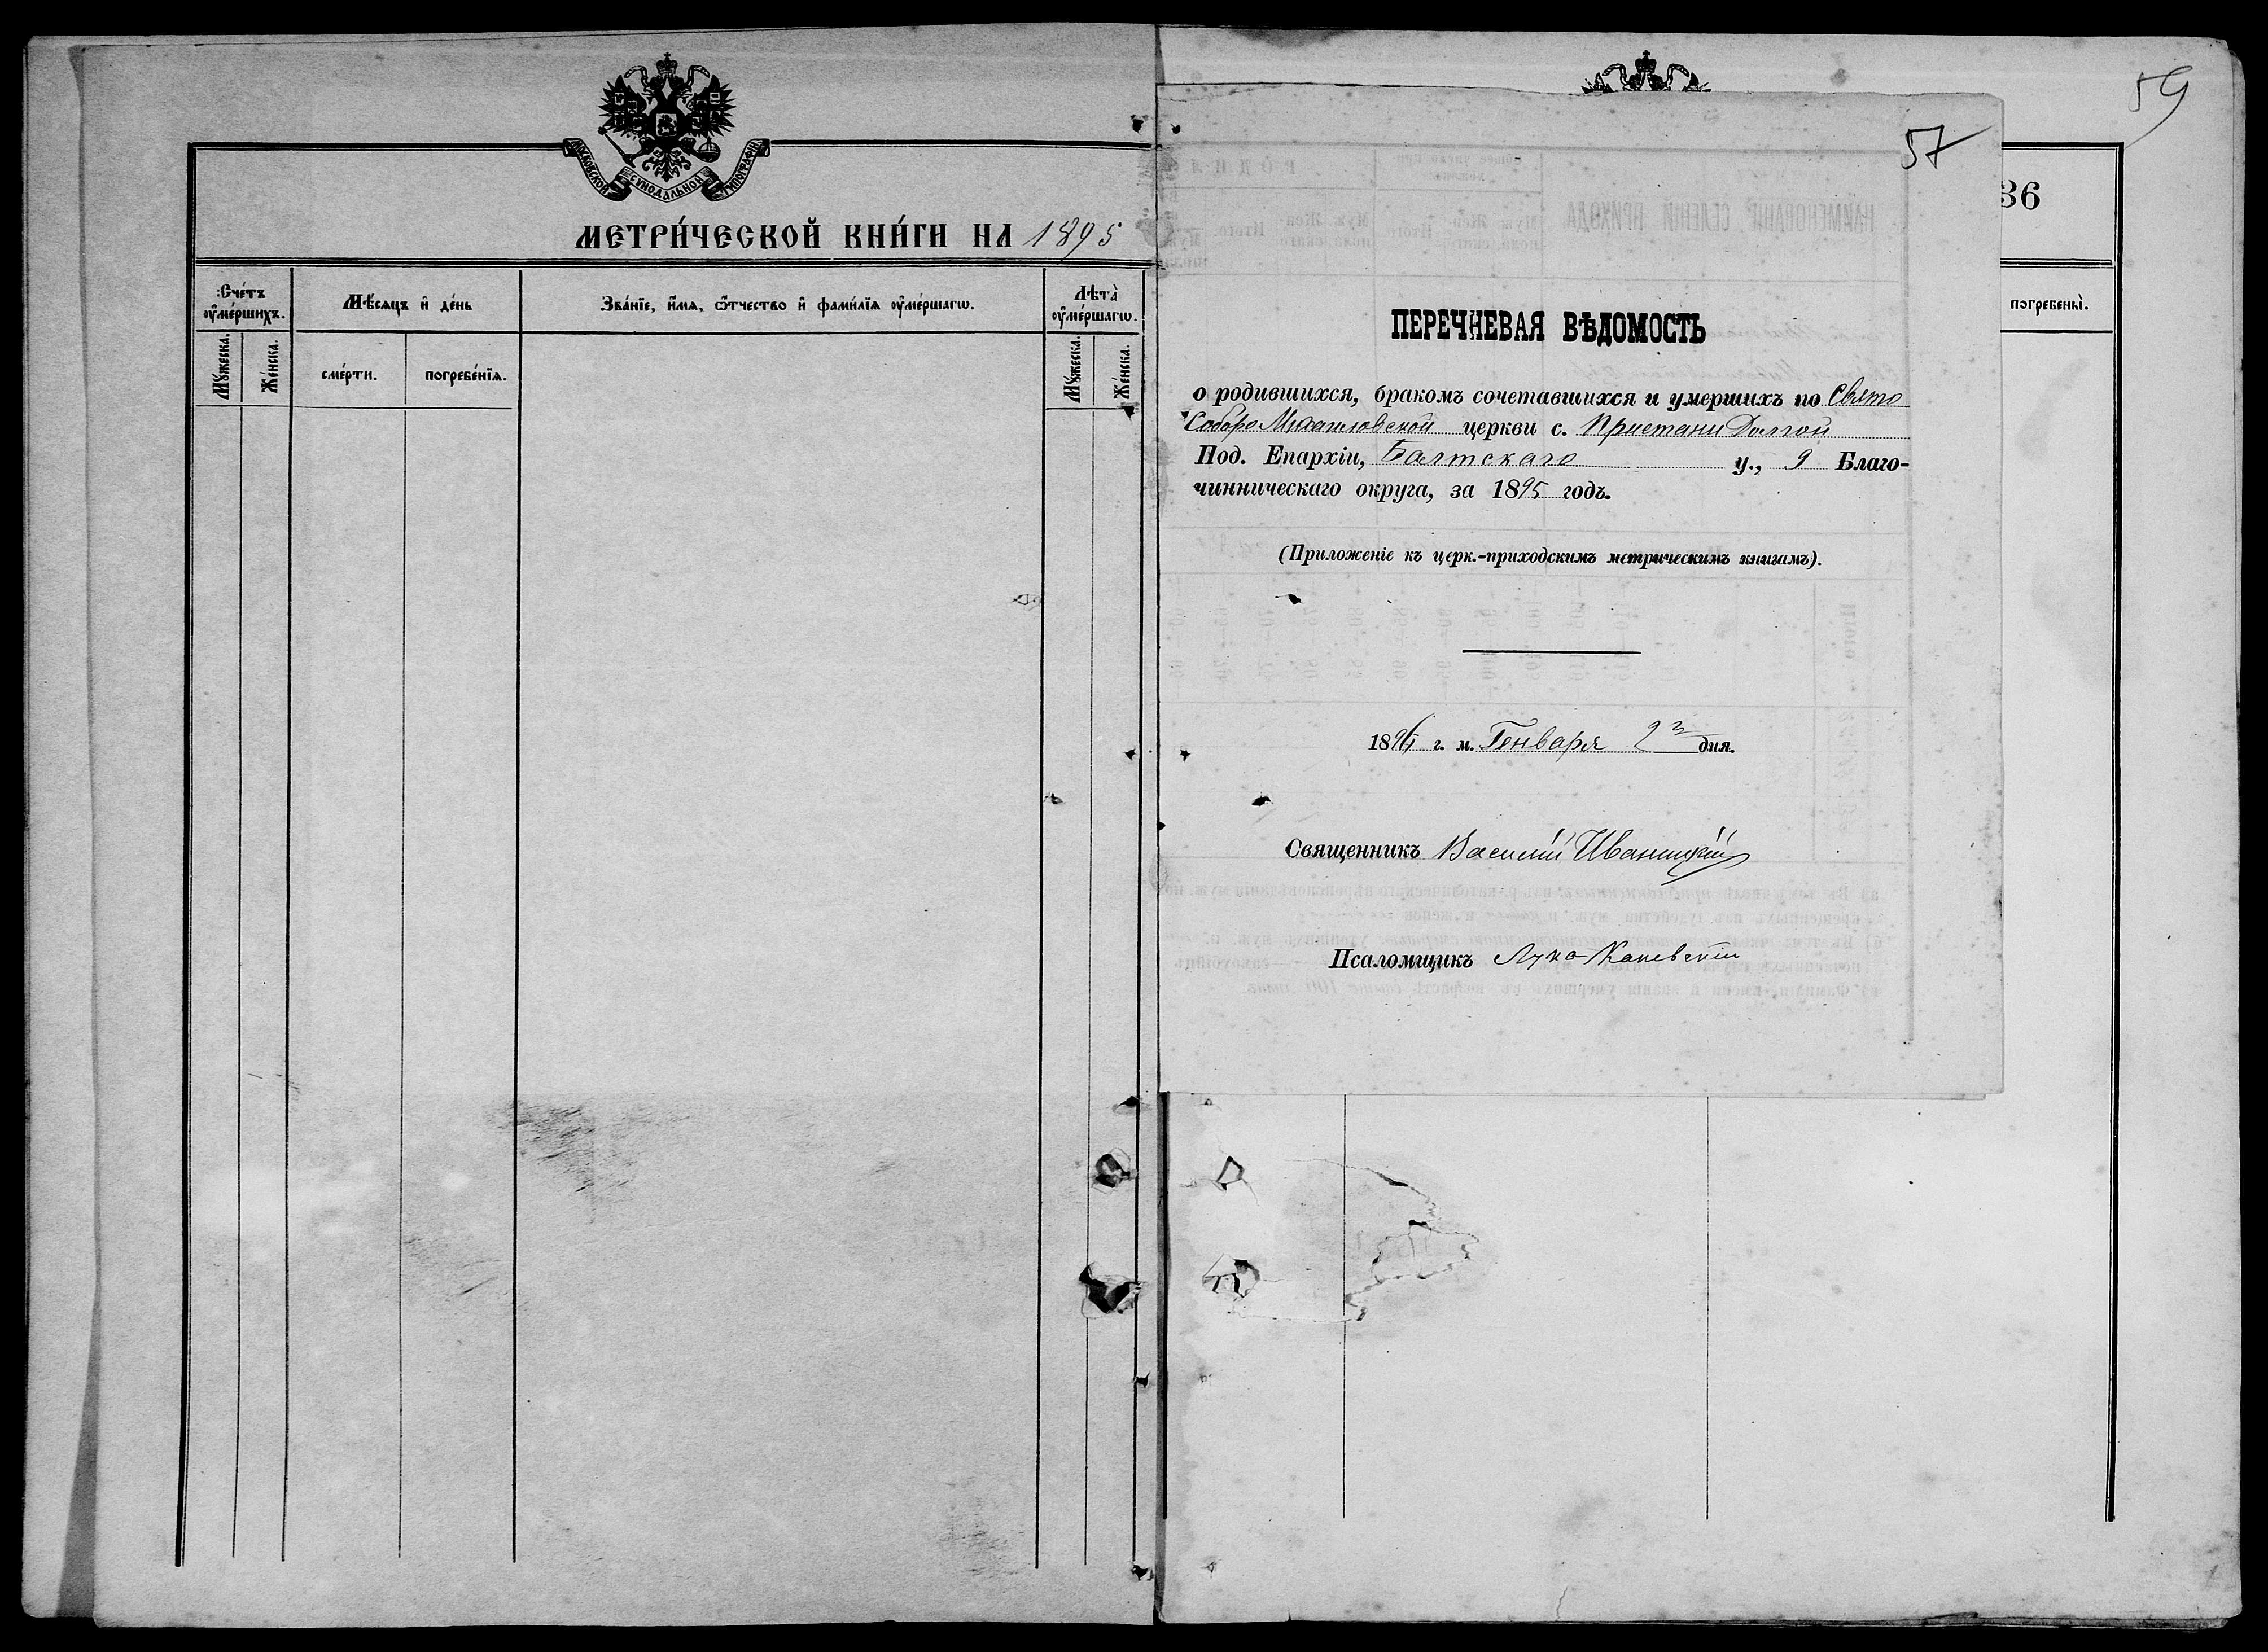 МОСКОВСКОЙ СУНОДАЛЬНОЙ ТИПОГРАФІИ
МЕТРИ́ЧЕСКОЙ КНИ́ГИ НА 1895
Сче́тъ ᲂу҆ме́ршихъ.
Мѣ́сяцъ и҆ де́нь
Зва́нїе, и҆́мя, ѻ҆́тчество и҆ фами́лїя ᲂу҆ме́ршагѡ.
Лѣта̀ ᲂу҆ме́ршагѡ.
Мꙋ́жеска.
Же́нска.
сме́рти.
погребе́нїя.
Мꙋ́жеска.
Же́нска.
59
57
36
погребены̀.
ПЕРЕЧНЕВАЯ ВѢДОМОСТЬ
о родившихся, бракомъ сочетавшихся и умершихъ по Свято
Соборо Михайловской церкви с. Пристани Долгой
Под. Епархіи, Балтскаго у., 9 Благо-
чинническаго округа, за 1895 годъ.
(Приложеніе къ церк.-приходскимъ метрическимъ книгамъ).
1896 г. м. Генваря 2 дня.
Священникъ Василій Иваницкій
Псаломщикъ Лука Каневскій